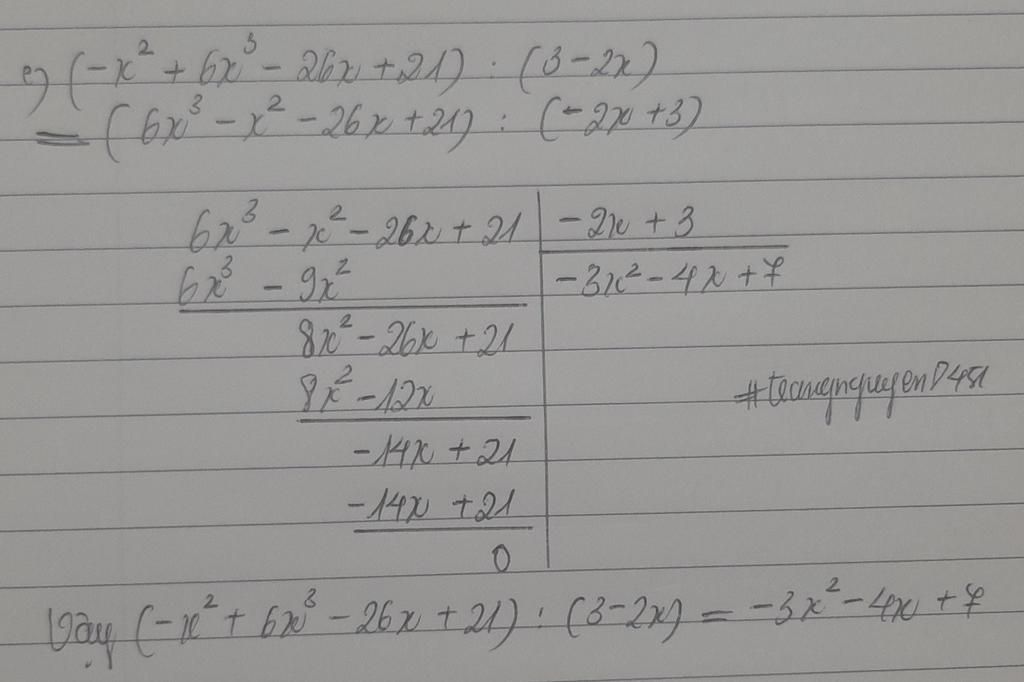 e) (-x² + 6x³ - 26x + 21) : (3 - 2x)
= (6x³ - x² - 26x + 21) : (-2x + 3)
6x³ - x² - 26x + 21 | -2x + 3
6x³ - 9x² | -3x² - 4x + 7
8x² - 26x + 21
8x² - 12x
-14x + 21
-14x + 21
0
Vậy (-x² + 6x³ - 26x + 21) : (3 - 2x) = -3x² - 4x + 7